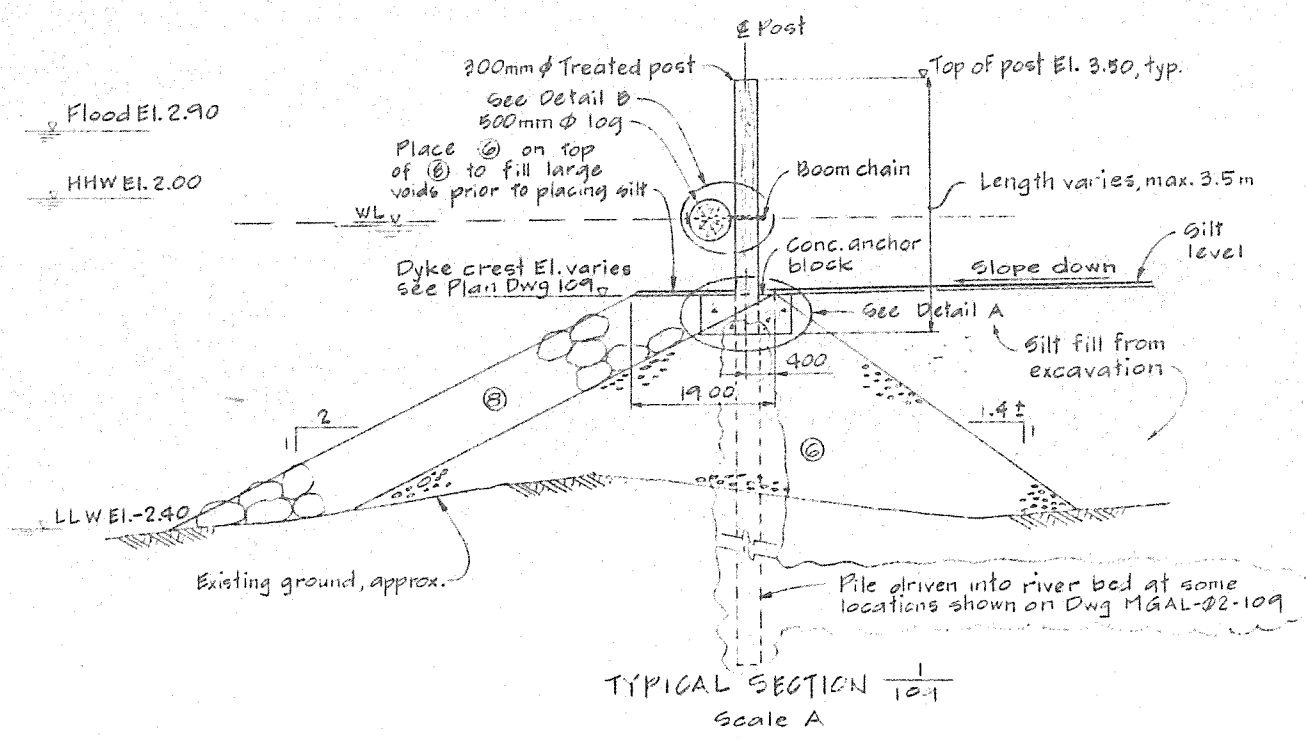 ℄ Post
300mm ϕ Treated post
Top of post El. 3.50, typ.
See Detail B
500mm ϕ log
Flood El. 2.90
Place ⑥ on top
of ⑧ to fill large
voids prior to placing silt
Boom chain
HHW El. 2.00
Length varies, max. 3.5m
WL
Silt
level
Conc. anchor
block
Dyke crest El. varies
see Plan Dwg 109
Slope down
See Detail A
Silt fill from
excavation
400
1900
⑧
2
1
1.4±
1
⑥
LLW El. -2.40
Existing ground, approx.
Pile driven into river bed at some
locations shown on Dwg MGAL-02-109
TYPICAL SECTION 1
Scale A